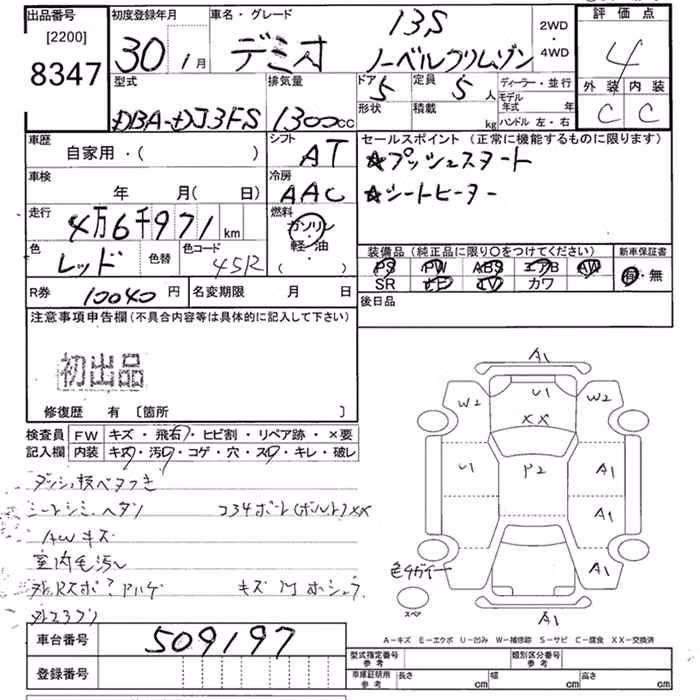 出品番号 初度登録年月 車名・グレード 評価点
[2200] 8347
30 1月
デミオ 13S ノーベルクリムゾン
2WD・4WD
4
外装 内装
C C
型式 排気量 ドア 定員 ディーラー・並行
DBA-DJ3FS 1300cc 5 5人
形状 積載 kg モデル年式 年
ハンドル 左・右
車歴 シフト セールスポイント (正常に機能するものに限ります)
自家用・( ) AT
☆プッシュスタート
車検 冷房
年 月( 日) AAC
☆シートヒーター
走行 燃料
4万6千971km ガソリン・軽・油 ( )
色 色替 色コード
レッド 45R
装備品 (純正品に限り〇をつけてください) 新車保証書
PS PW ABS エアB AW 有・無
SR ナビ TV カワ
R券 10040円 名変期限 月 日 後日品
注意事項申告欄 (不具合内容等は具体的に記入して下さい)
初出品
修復歴 有 [箇所 ]
検査員記入欄 FW キズ・飛石・ヒビ割・リペア跡・×要
内装 キズ・汚れ・コゲ・穴・スレ・キレ・破レ
A1
W2 U1 W2
XX
U1 P2 A1
A1
A1
スペア
A1
シートシミ、ヘタリ コ34ボート(ボルト)XX
AWキズ
室内毛汚レ
A-キズ E-エクボ U-凹み W-補修跡 S-サビ C-腐食 XX-交換済
車台番号 509197
登録番号
型式指定番号 参考 類別区分番号 参考
車庫証明用 参考 長さ cm 幅 cm 高さ cm